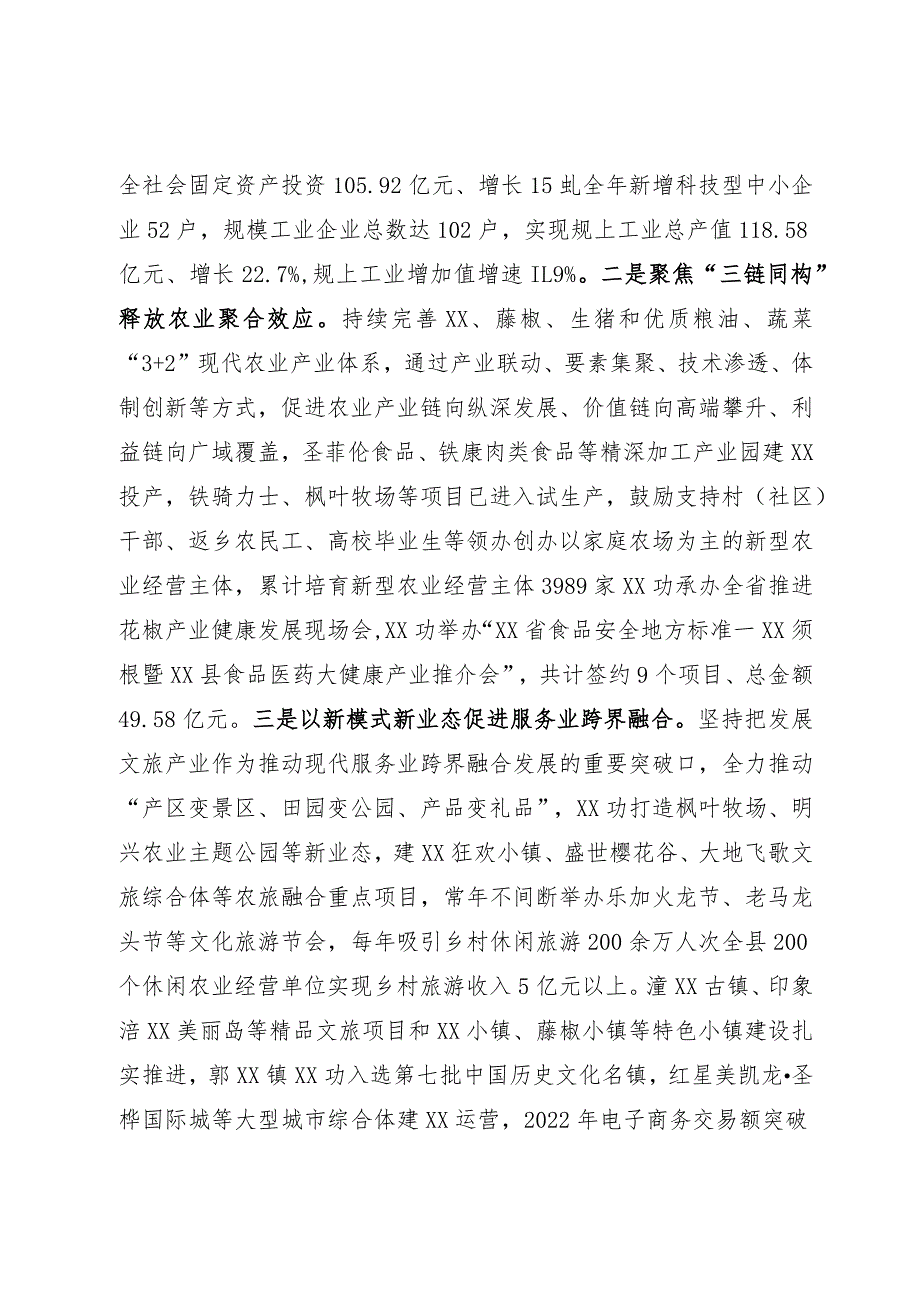 全社会固定资产投资 105.92 亿元、增长 15 虬全年新增科技型中小企
业 52 户，规模工业企业总数达 102 户，实现规上工业总产值 118.58
亿元、增长 22.7%,规上工业增加值增速 IL9%。二是聚焦“三链同构”
释放农业聚合效应。持续完善 XX、藤椒、生猪和优质粮油、蔬菜
“3+2”现代农业产业体系，通过产业联动、要素集聚、技术渗透、体
制创新等方式，促进农业产业链向纵深发展、价值链向高端攀升、利
益链向广域覆盖，圣菲伦食品、铁康肉类食品等精深加工产业园建 XX
投产，铁骑力士、枫叶牧场等项目已进入试生产，鼓励支持村（社区）
干部、返乡农民工、高校毕业生等领办创办以家庭农场为主的新型农
业经营主体，累计培育新型农业经营主体 3989 家 XX 功承办全省推进
花椒产业健康发展现场会,XX 功举办“XX 省食品安全地方标准一 XX 须
根暨 XX 县食品医药大健康产业推介会”，共计签约 9 个项目、总金额
49.58 亿元。三是以新模式新业态促进服务业跨界融合。坚持把发展
文旅产业作为推动现代服务业跨界融合发展的重要突破口，全力推动
“产区变景区、田园变公园、产品变礼品”，XX 功打造枫叶牧场、明
兴农业主题公园等新业态，建 XX 狂欢小镇、盛世樱花谷、大地飞歌文
旅综合体等农旅融合重点项目，常年不间断举办乐加火龙节、老马龙
头节等文化旅游节会，每年吸引乡村休闲旅游 200 余万人次全县 200
个休闲农业经营单位实现乡村旅游收入 5 亿元以上。潼 XX 古镇、印象
涪 XX 美丽岛等精品文旅项目和 XX 小镇、藤椒小镇等特色小镇建设扎
实推进，郭 XX 镇 XX 功入选第七批中国历史文化名镇，红星美凯龙•圣
桦国际城等大型城市综合体建 XX 运营，2022 年电子商务交易额突破